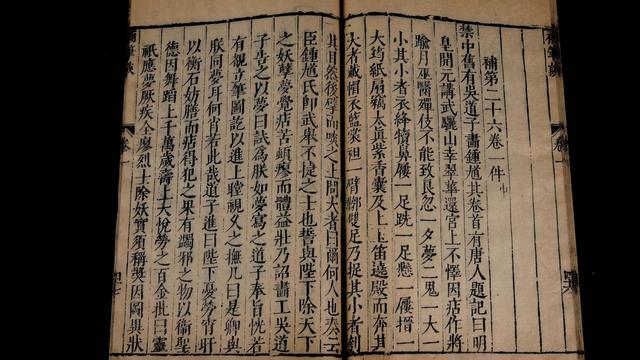 補第二十六卷一件
禁中舊有吳道子畫鍾馗其卷首有唐人題記曰明
皇開元講武驪山幸翠華還宮上不懌因痁作將
踰月巫醫殫伎不能致良忽一夕夢二鬼一大一
小其小者衣絳犢鼻屨一足跣一足懸一屨搢一
大筠紙扇竊太真紫香囊及上玉笛遶殿而奔其
大者戴帽衣藍裳袒一臂鞹雙足乃捉其小者刳
其目然後擘而啖之上問大者曰爾何人也奏云
臣鍾馗氏即武舉不捷之士也誓與陛下除天下
之妖孽夢覺痁苦頓瘳而體益壯乃詔畫工吳道
子告之以夢曰試爲朕如夢寫之道子奉旨恍若
有覩立筆圖訖以進上瞠視久之撫几曰是卿與
朕同夢耳何肖若此哉道子進曰陛下憂勞宵旰
以衡石妨膳而痁得犯之果有蠲邪之物以衞聖
德因舞蹈上千萬歲壽上大悅勞之百金批曰靈
祇應夢厥疾全瘳烈士除妖實須稱奬因圖異狀
補筆談
卷一